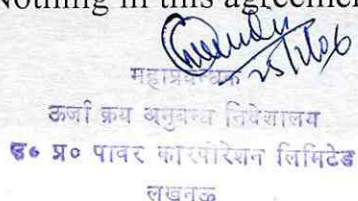 Nothing in this agreemen
महाप्रबन्धक 25/1/06
ऊर्जा क्रय अनुबन्ध निदेशालय
उ० प्र० पावर कारपोरेशन लिमिटेड
लखनऊ